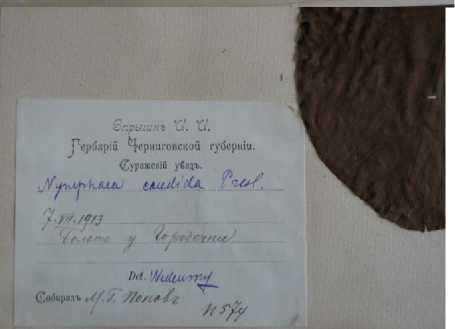 И. И.
Гербарій Черниговской губерніи.
Суражскій уѣздъ.
Nymphaea candida Presl.
7.VII.1913
Болото у
Det.
Собиралъ М. Г. Поповъ
N 574